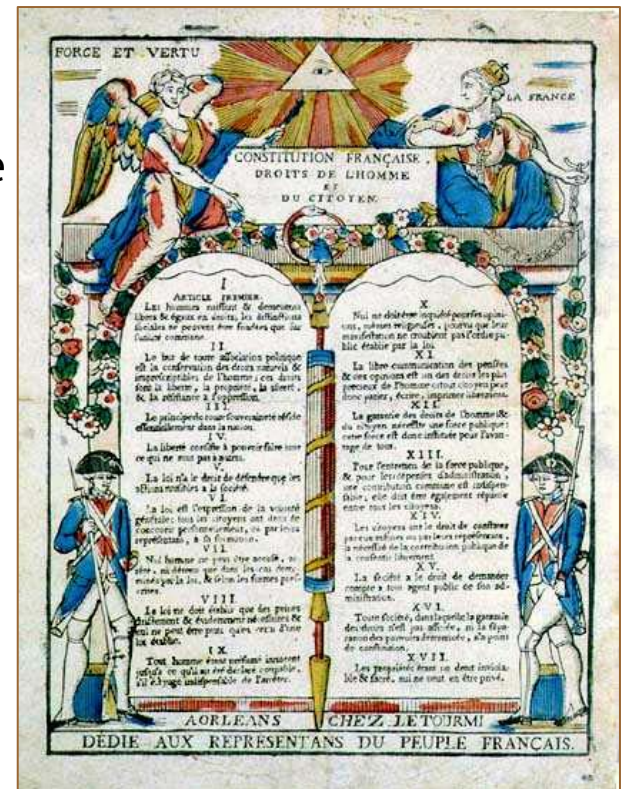 e
FORCE ET VERTU
LA FRANCE
CONSTITUTION FRANÇAISE,
DROITS DE L'HOMME
ET
DU CITOYEN.
I
ARTICLE PREMIER.
Les hommes naissent & demeurent
libres & égaux en droits, les distinctions
sociales ne peuvent être fondées que sur
l'utilité commune.
II.
Le but de toute association politique
est la conservation des droits naturels &
imprescriptibles de l'homme; ces droits
sont la liberté, la propriété, la sûreté,
& la résistance à l'oppression.
III.
Le principe de toute souveraineté réside
essentiellement dans la nation.
IV.
La liberté consiste à pouvoir faire tout
ce qui ne nuit pas à autrui.
V.
La loi n'a le droit de défendre que les
actions nuisibles à la société.
VI.
La loi est l'expression de la volonté
générale; tous les citoyens ont droit de
concourir personnellement, ou par leurs
représentans, à sa formation.
VII.
Nul homme ne peut être accusé,
ni détenu que dans les cas
par la loi, & selon les formes
VIII.
La loi ne doit établir que des peines
strictement & évidemment nécessaires &
nul ne peut être puni qu'en vertu d'une
loi établie.
IX.
Tout homme étant présumé innocent
jusqu'à ce qu'il ait été déclaré coupable,
s'il est jugé indispensable de l'arrêter.
X.
Nul ne doit être inquiété pour ses opini-
ons, mêmes religieuses, pourvu que leur
manifestation ne troublent pas l'ordre pu-
blic établie par la loi.
XI.
La libre communication des pensées
& des opinions est un des droits les plus
précieux de l'homme citout citoyen peut
donc parler, écrire, imprimer librement.
XII.
La garantie des droits de l'homme &
du citoyen nécessite une force publique:
cette force est donc instituée pour l'avan-
tage de tous.
XIII.
Pour l'entretien de la force publique,
& pour les dépenses d'administration,
une contribution commune est indispen-
sable, elle doit être également répartie
entre tout les citoyens.
XIV.
Les citoyens ont le droit de constater
par eux mêmes ou par leurs représentans,
la nécessité de la contribution publique de
la consentir librement.
XV.
La société a le droit de demander
compte à tout agent public de son ad-
ministration.
XVI.
Toute société, dans laquelle la garantie
des droits n'est pas assurée, ni la sépa-
ration des pouvoirs déterminée, n'a point
de constitution.
XVII.
Les propriétés étant un droit inviola-
ble & sacré, nul ne peut en être privé.
A ORLEANS CHEZ LETOURMI
DÉDIÉ AUX REPRESENTANS DU PEUPLE FRANÇAIS.